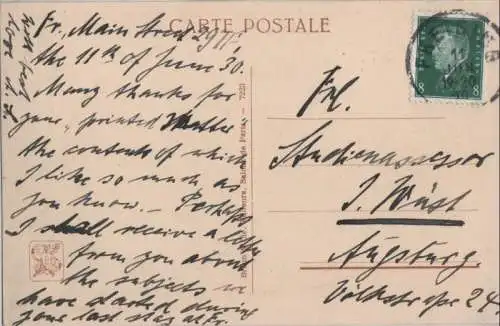 CARTE POSTALE
Fr, Main Street 29 III
the 11th of June 30.
Many thanks for
your "printed Matter"
the contents of which
I like so much as
you know. - Perhaps
I shall receive a letter
from you about
the subjects we
have started during
your last stay
Frl.
Studienassessor
J. Wüst
Augsburg
Völkstraße 24
8 8
7223